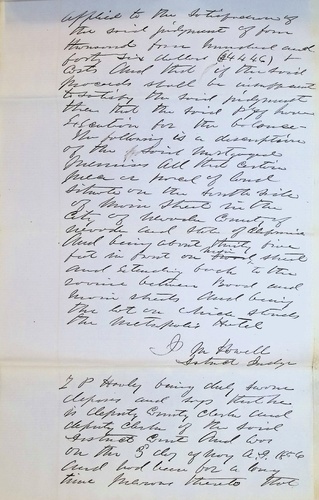 applied to the satisfaction of
the said judgment of four
thousand four hundred and
forty six dollars ($4446) &
costs And that if the said
proceeds shall be insufficient
to satisfy the said judgment
then that the said plff have
Execution for the balance
The following is a description
of the said mortgaged
premises All that certain
piece or parcel of land
situate on the South side
of Main Street in the
City of Nevada County of
Nevada and State of California
And being about thirty five
feet in front on Main street
and extending back to the
ravine between Broad and
Main streets And being
the lot on which stands
the Metropolis Hotel
J M Howell
District Judge
being duly sworn
deposes and says that he
is deputy County Clerk and
deputy Clerk of the said
District Court And was
on the 3 day of Nov A.D. 1856
And had been for a long
time previous thereto that